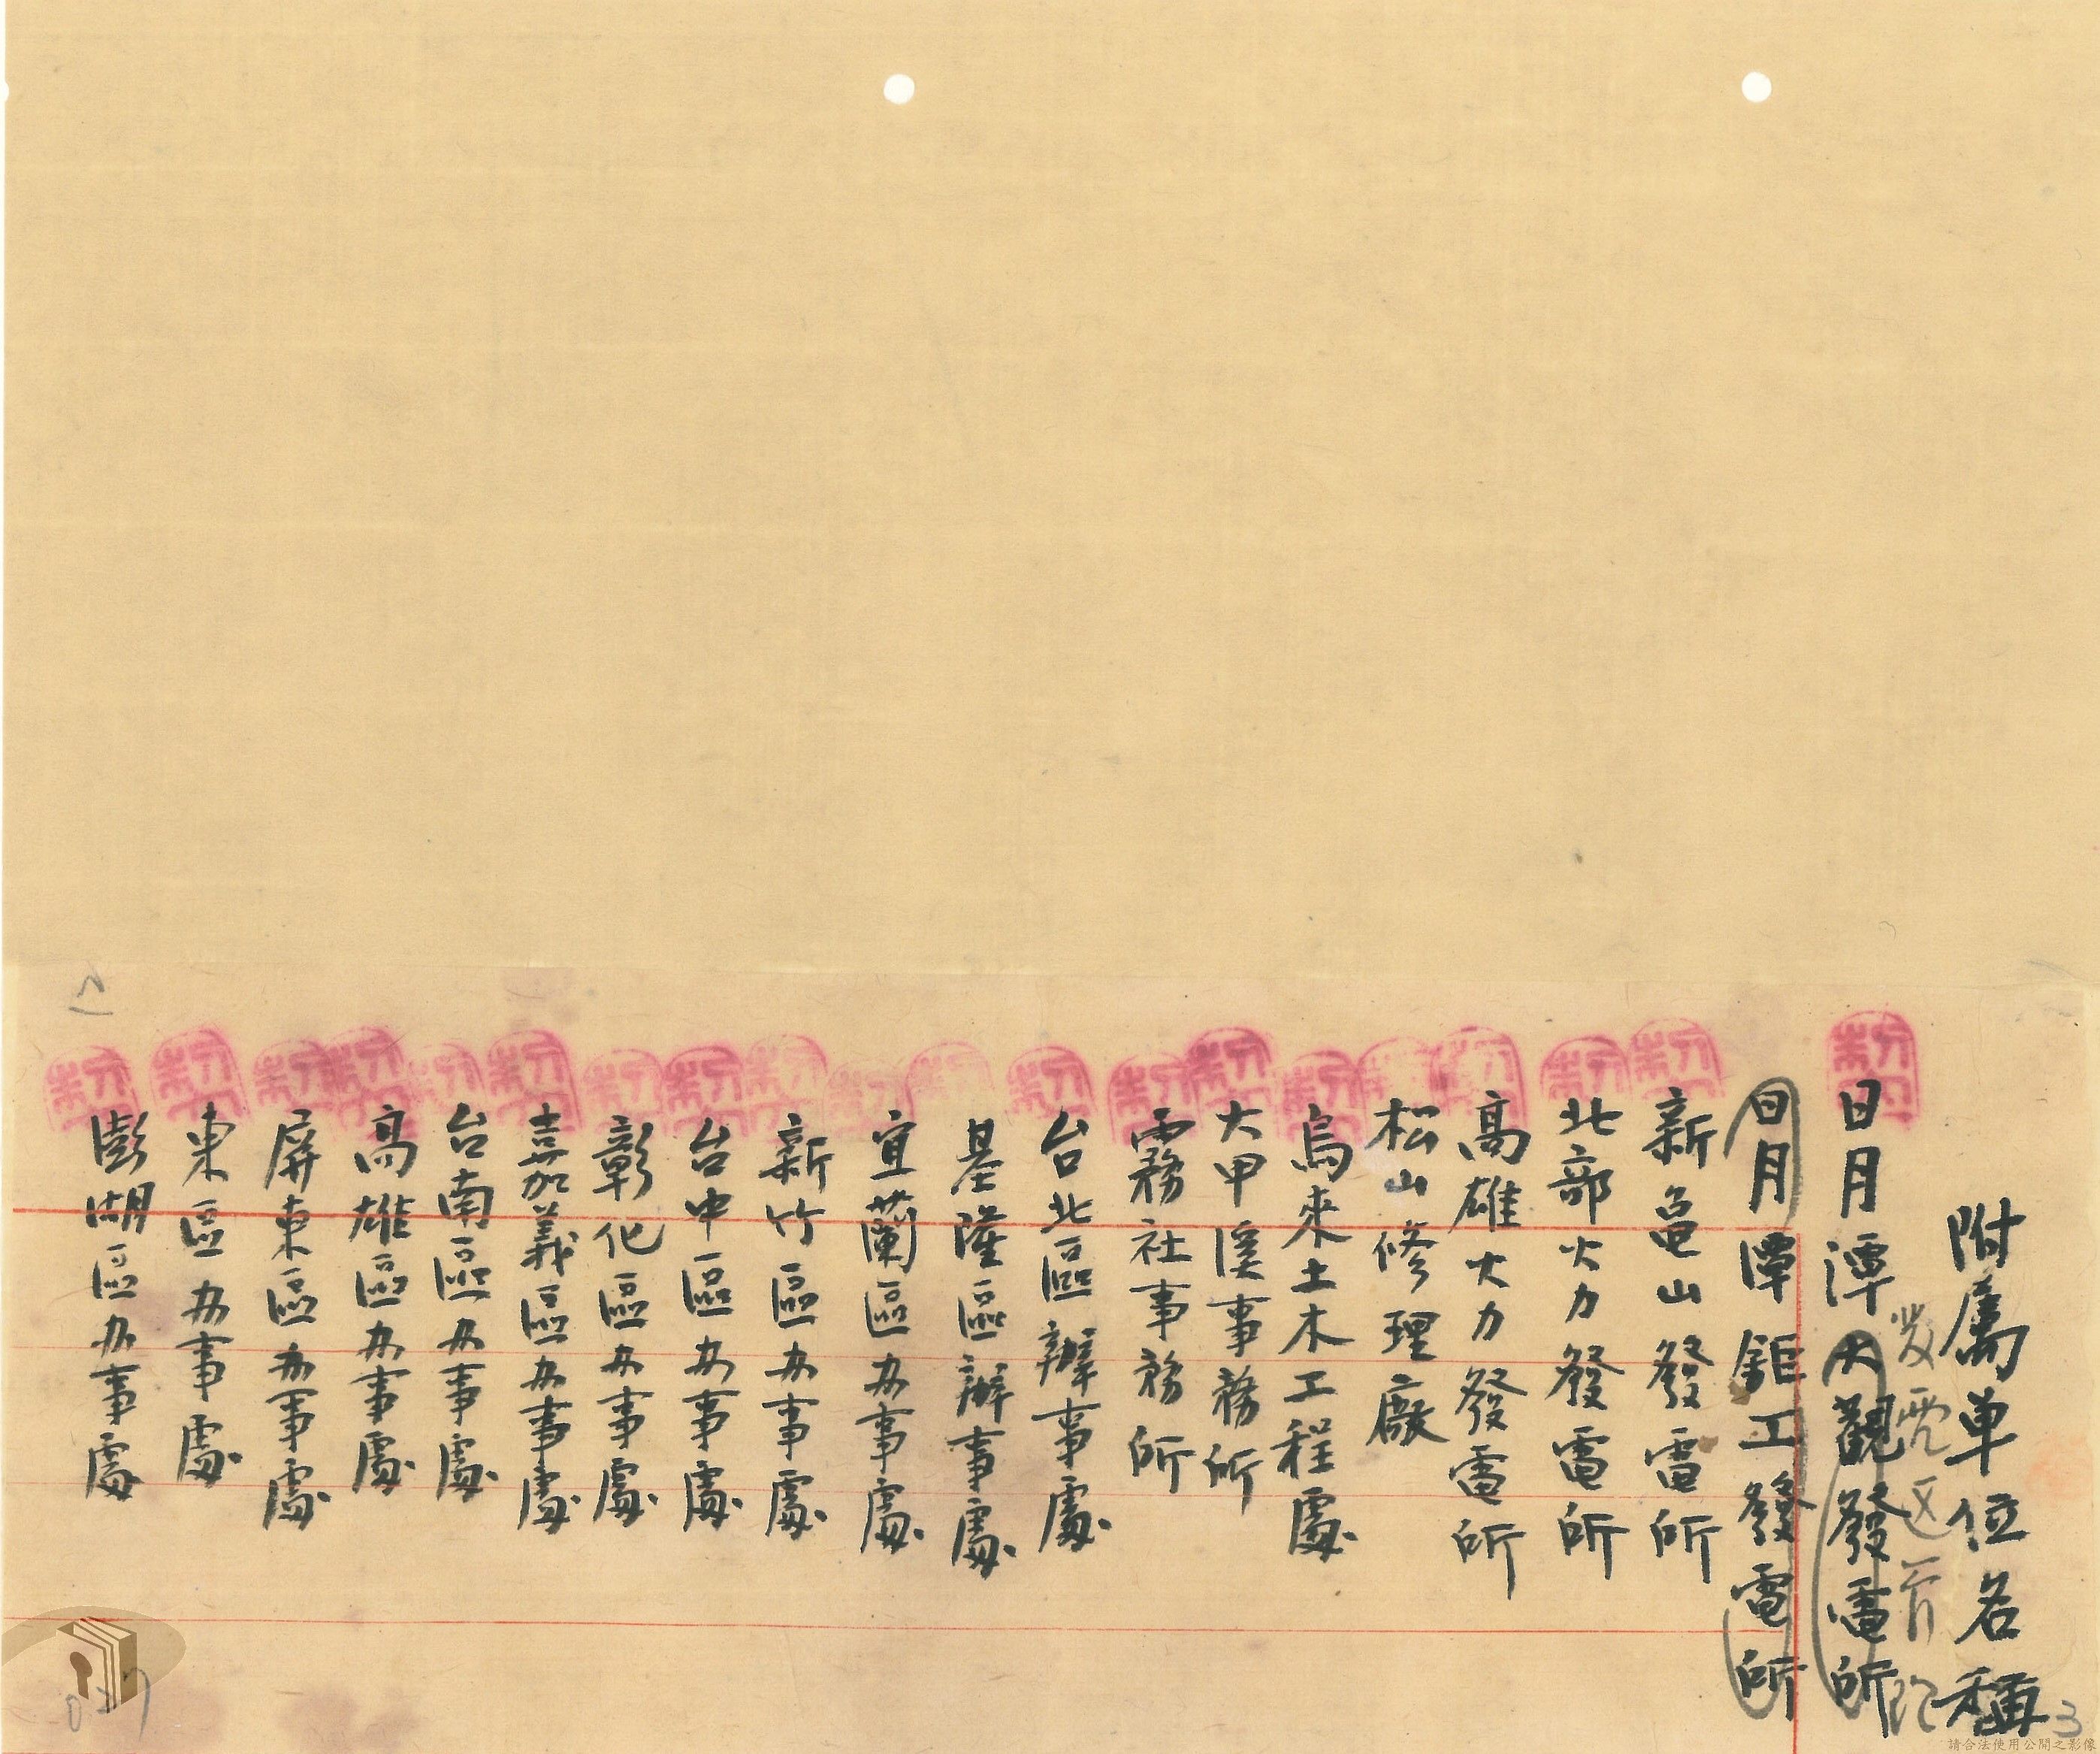 附屬单位名稱
發電區管理
日月潭大觀發電所
日月潭鉅工發電所
新龜山發電所
北部火力發電所
高雄火力發電所
松山修理廠
烏來土木工程處
大甲溪事務所
霧社事務所
台北區辦事處
基隆區辦事處
宜蘭區办事處
新竹區办事處
台中區办事處
彰化區办事處
嘉義區办事處
台南區办事處
高雄區办事處
屏東區办事處
東區办事處
澎湖區办事處
3
請合法使用公開之影像